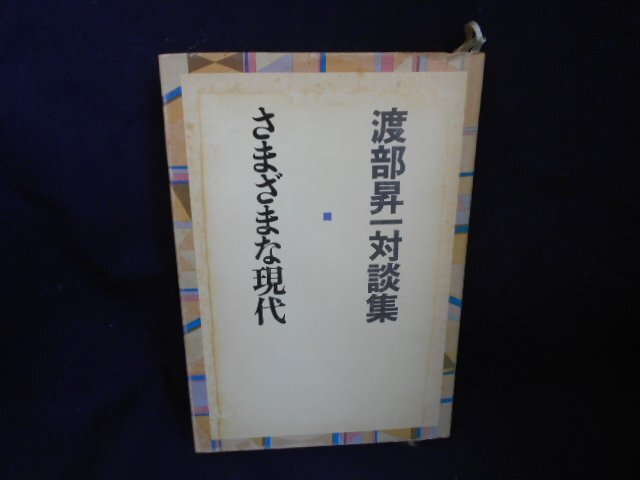 渡部昇一対談集
さまざまな現代